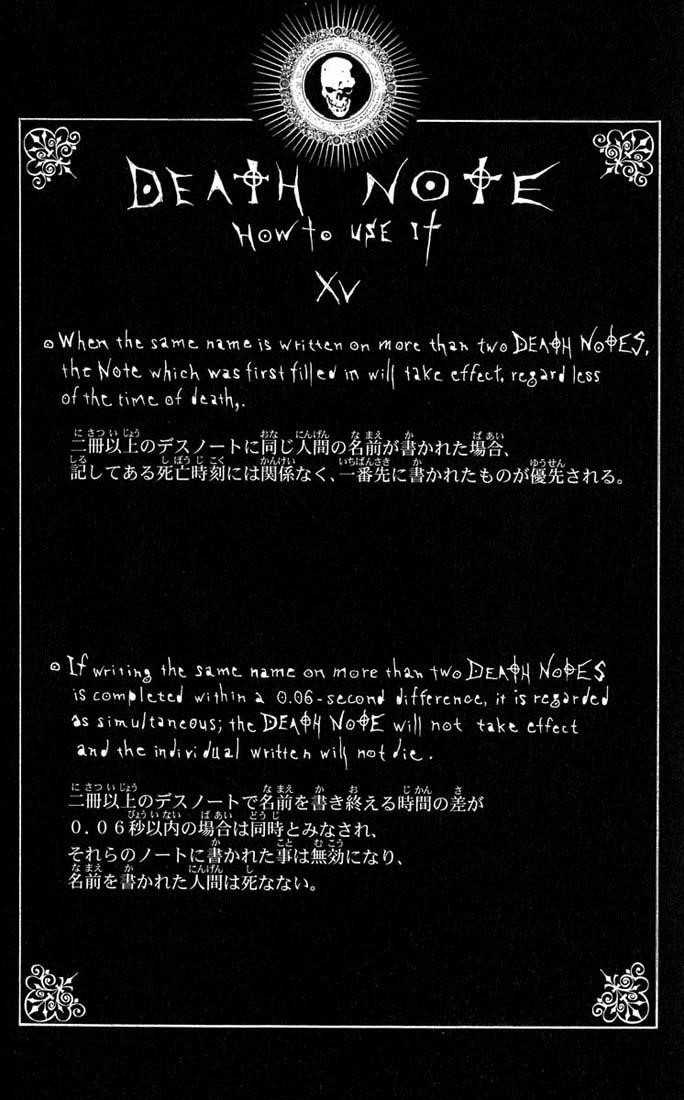 DEATH NOTE
HOW to USE It
XV
When the same name is written on more than two DEATH NOTES,
the Note which was first filled in will take effect, regardless
of the time of death,.
二冊以上のデスノートに同じ人間の名前が書かれた場合、
記してある死亡時刻には関係なく、一番先に書かれたものが優先される。
If writing the same name on more than two DEATH NOTES
is completed within a 0.06-second difference, it is regarded
as simultaneous; the DEATH NOTE will not take effect
and the individual written will not die.
二冊以上のデスノートで名前を書き終える時間の差が
０.０６秒以内の場合は同時とみなされ、
それらのノートに書かれた事は無効になり、
名前を書かれた人間は死なない。